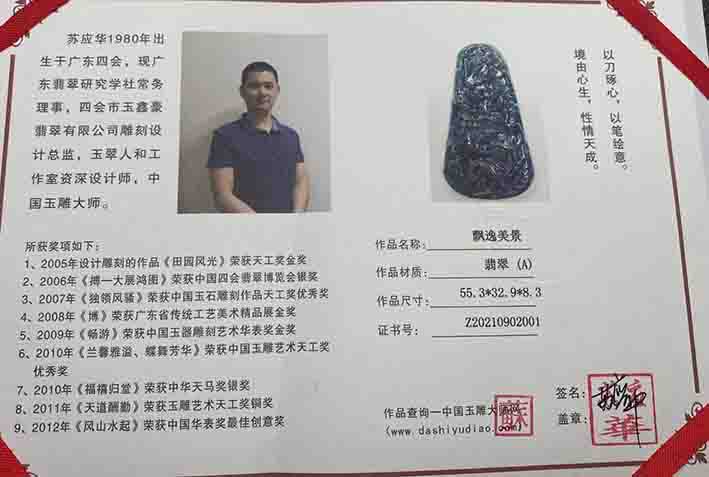 苏应华1980年出
生于广东四会，现广
东翡翠研究学社常务
理事，四会市玉鑫豪
翡翠有限公司雕刻设
计总监，玉翠人和工
作室资深设计师，中
国玉雕大师。
以刀琢心，以笔绘意。
境由心生，性情天成。
所获奖项如下：
1、2005年设计雕刻的作品《田园风光》荣获天工奖金奖
2、2006年《搏一大展鸿图》荣获中国四会翡翠博览会银奖
3、2007年《独领风骚》荣获中国玉石雕刻作品天工奖优秀奖
4、2008年《博》荣获广东省传统工艺美术精品展金奖
5、2009年《畅游》荣获中国玉器雕刻艺术华表奖金奖
6、2010年《兰馨雅溢、蝶舞芳华》荣获中国玉雕艺术天工奖
优秀奖
7、2010年《福禧归堂》荣获中华天马奖银奖
8、2011年《天道酬勤》荣获玉雕艺术天工奖铜奖
9、2012年《风山水起》荣获中国华表奖最佳创意奖
作品名称：飘逸美景
作品材质：翡翠（A）
作品尺寸：55.3*32.9*8.3
证书号：Z20210902001
签名：
盖章：
作品查询一中国玉雕大师网
（www.dashiyudiao.com）
蘇